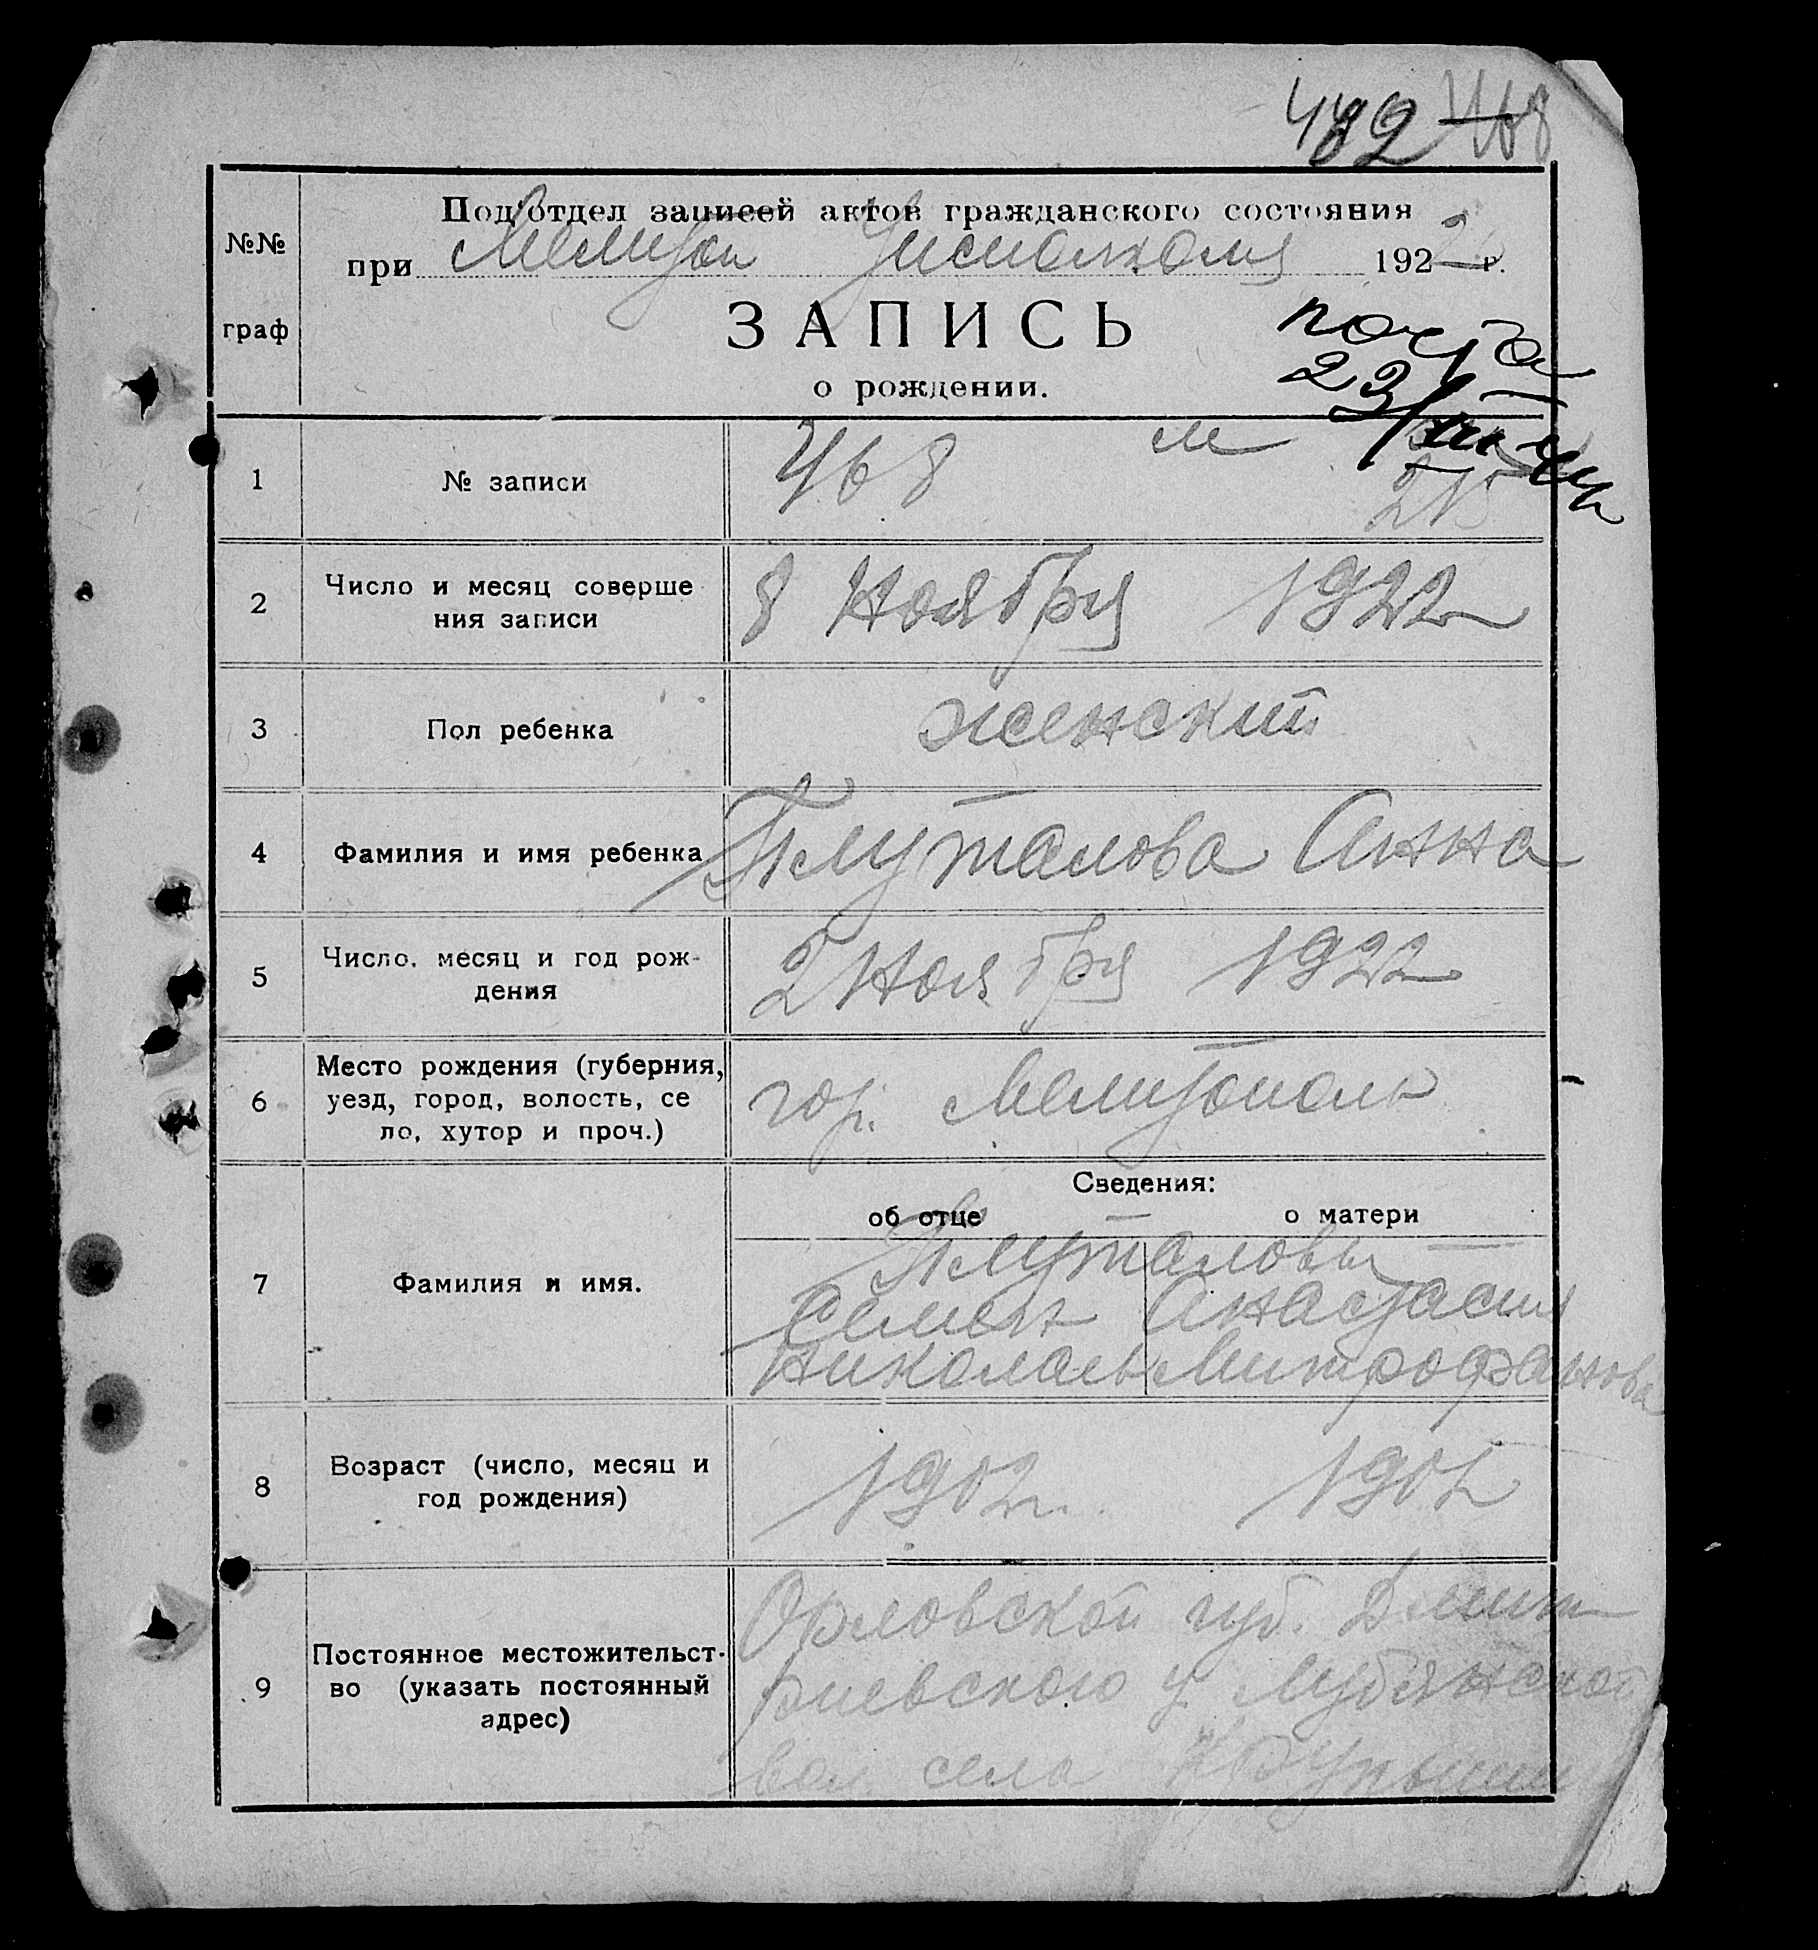 482 468
Под'отдел записей актов гражданского состояния
№№
при Мелитоп Уисполкома 1922 г.
граф
ЗАПИСЬ
о рождении.
1 № записи 468 м
2 Число и месяц соверше 8 Ноября 1922
ния записи
3 Пол ребенка женский
4 Фамилия и имя ребенка Плуталова Анна
5 Число, месяц и год рож- 2 Ноября 1922
дения
6 Место рождения (губерния, гор. Мелитополь
уезд, город, волость, се
ло, хутор и проч.)
Сведения:
об отце о матери
Плуталовы
7 Фамилия и имя. Семен Анастасия
Николаев Митрофанова
8 Возраст (число, месяц и 1902 1902
год рождения)
Орловской губ. Дмит
9 Постоянное местожительст- риевского у Лубянской
во (указать постоянный
адрес) вол села